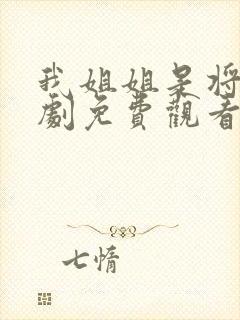 我姐姐呆将
劇免費觀看
七情